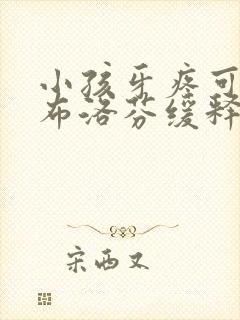 小孩牙疼可
布洛芬缓释
宋西又